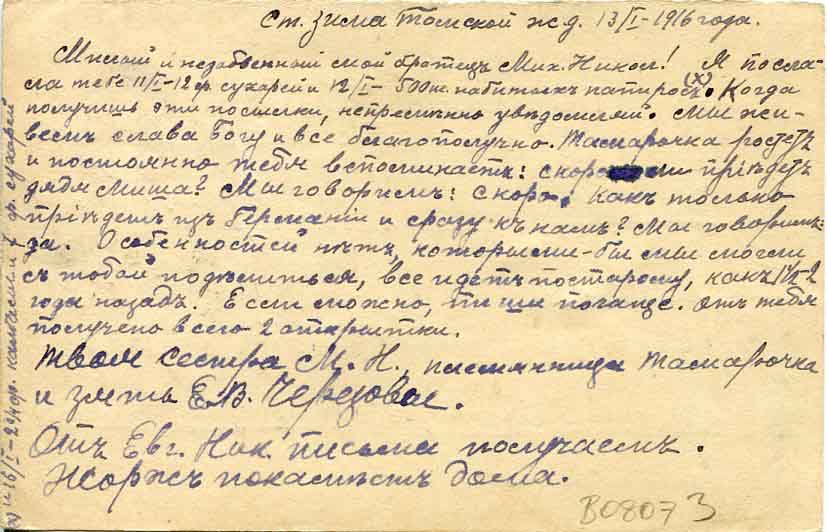 Ст. Зима Томской ж д. 13/I-1916 года.
Милый и незабвенный мой братецъ Мих. Никол! Я посла-
ла тебе 11/I-12 ф. сухарей и 12/I- 500 шт. набитыхъ папиросъ (х). Когда
получишь эти посылки, непремѣнно увѣдомляй. Мы жи-
вемъ слава Богу и все благополучно. Тамарочка ростетъ
и постоянно тебя вспоминаетъ: скоро ли пріѣдетъ
дядя Миша? Мы говоримъ: скоро. Какъ только
пріѣдетъ изъ Германіи и сразу къ намъ? Мы говоримъ:
да. Особенностей нѣтъ, которыми-бы мы могли
съ тобой подѣлиться, все идетъ постарому, какъ 1½-2
года назадъ. Если можно, пиши почаще. Отъ тебя
получено всего 2 открытки.
Твоя сестра М. Н., племянница Тамарочка
и зять Е.В. Черезовы.
Отъ Евг. Ник. письма получаемъ.
Жоржъ покамѣстъ дома.
(х) и 16/I-29 ф. сухарей
В0807 3